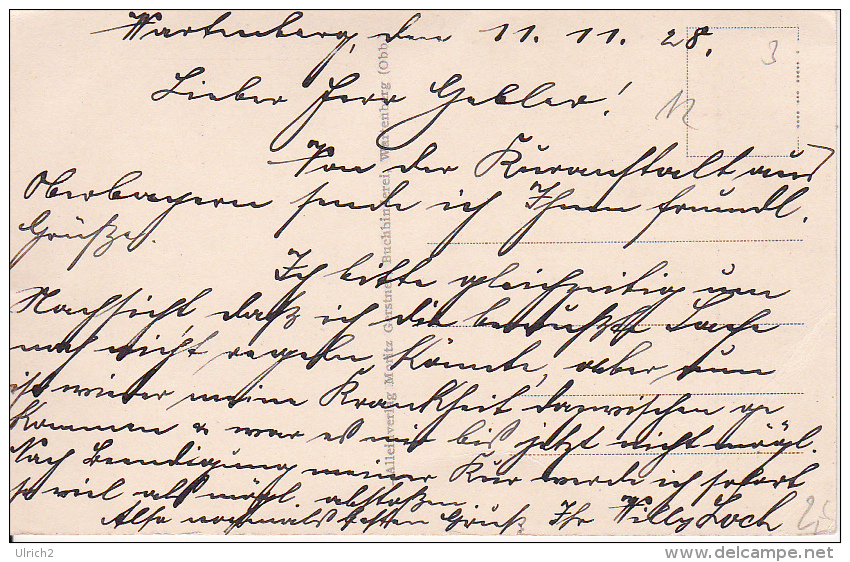 Wartenberg, den 11. 11. 28.
Lieber Herr Gebler!
Von der Kuranstalt aus
Oberbayern sende ich Ihnen freundl.
Grüße.
Ich bitte gleichzeitig um
Nachsicht daß ich die bewußte Sache
noch nicht regeln könnte, aber nun
ist wieder meine Krankheit dazwischen ge
kommen & war es mir bis jetzt nicht mögl.
Nach Beendigung meiner Kur werde ich sofort
so viel als mögl. abstoßen.
Also nochmals besten Gruß Ihr Willy Loch
Alleinverlag Moritz Gerstner, Buchbinderei, Wartenberg (Obb
3
12
Ulrich2
www.delcampe.net